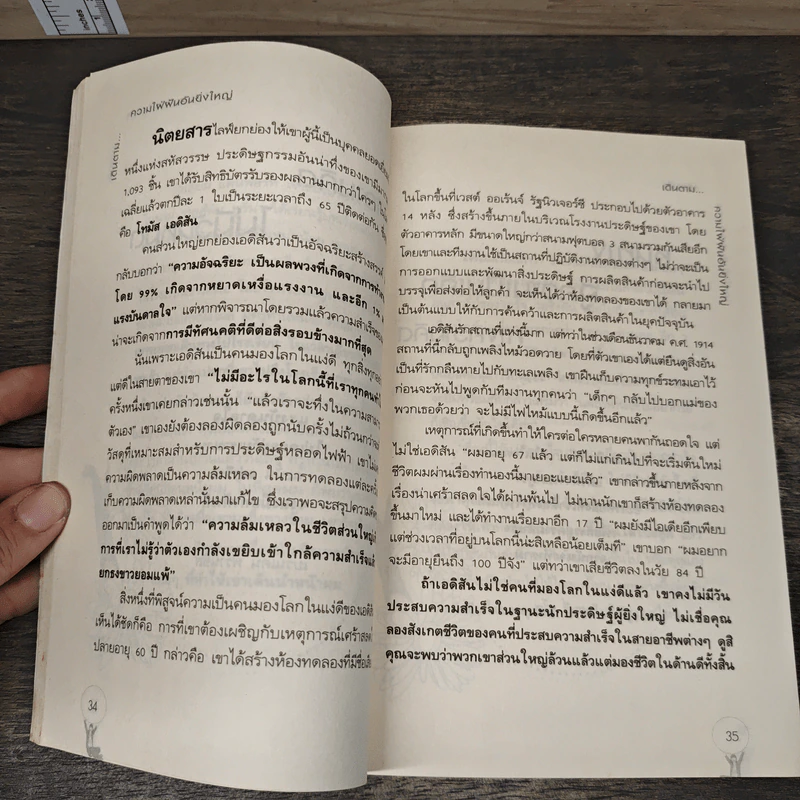 inches
ความใฝ่ฝันอันยิ่งใหญ่
เดินตาม...
นิตยสารไลฟ์ยกย่องให้เขาผู้นี้เป็นบุคคลยอดเยี่ยม
หนึ่งแห่งสหัสวรรษ ประดิษฐกรรมอันน่าทึ่งของเขามีมาก
1,093 ชิ้น เขาได้รับสิทธิบัตรรับรองผลงานมากกว่าใครๆ ใน
เฉลี่ยแล้วตกปีละ 1 ใบเป็นระยะเวลาถึง 65 ปีติดต่อกัน
คือ โทมัส เอดิสัน
คนส่วนใหญ่ยกย่องเอดิสันว่าเป็นอัจฉริยะสร้างสรรค์
กลับบอกว่า “ความอัจฉริยะ เป็นผลพวงที่เกิดจากการทำ
โดย 99% เกิดจากหยาดเหงื่อแรงงาน และอีก 1%
แรงบันดาลใจ” แต่หากพิจารณาโดยรวมแล้วความสำเร็จของ
น่าจะเกิดจากการมีทัศนคติที่ดีต่อสิ่งรอบข้างมากที่สุด
นั่นเพราะเอดิสันเป็นคนมองโลกในแง่ดี ทุกสิ่งทุกอย่าง
แต่ดีในสายตาของเขา “ไม่มีอะไรในโลกนี้ที่เราทุกคน
ครั้งหนึ่งเขาเคยกล่าวเช่นนั้น “แล้วเราจะทึ่งในความสามารถ
ตัวเอง” เขาเองยังต้องลองผิดลองถูกนับครั้งไม่ถ้วนกว่าจะ
วัสดุที่เหมาะสมสำหรับการประดิษฐ์หลอดไฟฟ้า เขาไม่
ความผิดพลาดเป็นความล้มเหลว ในการทดลองแต่ละครั้ง
เก็บความผิดพลาดเหล่านั้นมาแก้ไข ซึ่งเราพอจะสรุปความคิด
ออกมาเป็นคำพูดได้ว่า “ความล้มเหลวในชีวิตส่วนใหญ่
การที่เราไม่รู้ว่าตัวเองกำลังเขยิบเข้าใกล้ความสำเร็จแล้ว
ยกธงขาวยอมแพ้”
สิ่งหนึ่งที่พิสูจน์ความเป็นคนมองโลกในแง่ดีของเอดิสัน
เห็นได้ชัดก็คือ การที่เขาต้องเผชิญกับเหตุการณ์เศร้าสลด
ปลายอายุ 60 ปี กล่าวคือ เขาได้สร้างห้องทดลองที่มีชื่อเสียง
34
เดินตาม...
ความใฝ่ฝันอันยิ่งใหญ่
ในโลกขึ้นที่เวสต์ ออเร็นจ์ รัฐนิวเจอร์ซี ประกอบไปด้วยตัวอาคาร
14 หลัง ซึ่งสร้างขึ้นภายในบริเวณโรงงานประดิษฐ์ของเขา โดย
ตัวอาคารหลัก มีขนาดใหญ่กว่าสนามฟุตบอล 3 สนามรวมกันเสียอีก
โดยเขาและทีมงานใช้เป็นสถานที่ปฏิบัติงานทดลองต่างๆ ไม่ว่าจะเป็น
การออกแบบและพัฒนาสิ่งประดิษฐ์ การผลิตสินค้าก่อนจะนำไป
บรรจุเพื่อส่งต่อให้ลูกค้า จะเห็นได้ว่าห้องทดลองของเขาได้ กลายมา
เป็นต้นแบบให้กับการค้นคว้าและการผลิตสินค้าในยุคปัจจุบัน
เอดิสันรักสถานที่แห่งนี้มาก แต่ทว่าในช่วงเดือนธันวาคม ค.ศ. 1914
สถานที่นี้กลับถูกเพลิงไหม้วอดวาย โดยที่ตัวเขาเองได้แต่ยืนดูสิ่งอัน
เป็นที่รักกลืนหายไปกับทะเลเพลิง เขาฝืนเก็บความทุกข์ระทมเอาไว้
ก่อนจะหันไปพูดกับทีมงานทุกคนว่า “เด็กๆ กลับไปบอกแม่ของ
พวกเธอด้วยว่า จะไม่มีไฟไหม้แบบนี้เกิดขึ้นอีกแล้ว”
เหตุการณ์ที่เกิดขึ้นทำให้ใครต่อใครหลายคนพากันถอดใจ แต่
ไม่ใช่เอดิสัน “ผมอายุ 67 แล้ว แต่ก็ไม่แก่เกินไปที่จะเริ่มต้นใหม่
ชีวิตผมผ่านเรื่องทำนองนี้มาเยอะแยะแล้ว” เขากล่าวขึ้นภายหลังจาก
เรื่องน่าเศร้าสลดใจได้ผ่านพ้นไป ไม่นานนักเขาก็สร้างห้องทดลอง
ขึ้นมาใหม่ และได้ทำงานเรื่อยมาอีก 17 ปี “ผมยังมีไอเดียอีกเพียบ
แต่ช่วงเวลาที่อยู่บนโลกนี้น่ะสิเหลือน้อยเต็มที” เขาบอก “ผมอยาก
จะมีอายุยืนถึง 100 ปีจัง” แต่ทว่าเขาเสียชีวิตลงในวัย 84 ปี
ถ้าเอดิสันไม่ใช่คนที่มองโลกในแง่ดีแล้ว เขาคงไม่มีวัน
ประสบความสำเร็จในฐานะนักประดิษฐ์ผู้ยิ่งใหญ่ ไม่เชื่อคุณ
ลองสังเกตชีวิตของคนที่ประสบความสำเร็จในสายอาชีพต่างๆ ดูสิ
คุณจะพบว่าพวกเขาส่วนใหญ่ล้วนแล้วแต่มองชีวิตในด้านดีทั้งสิ้น
35